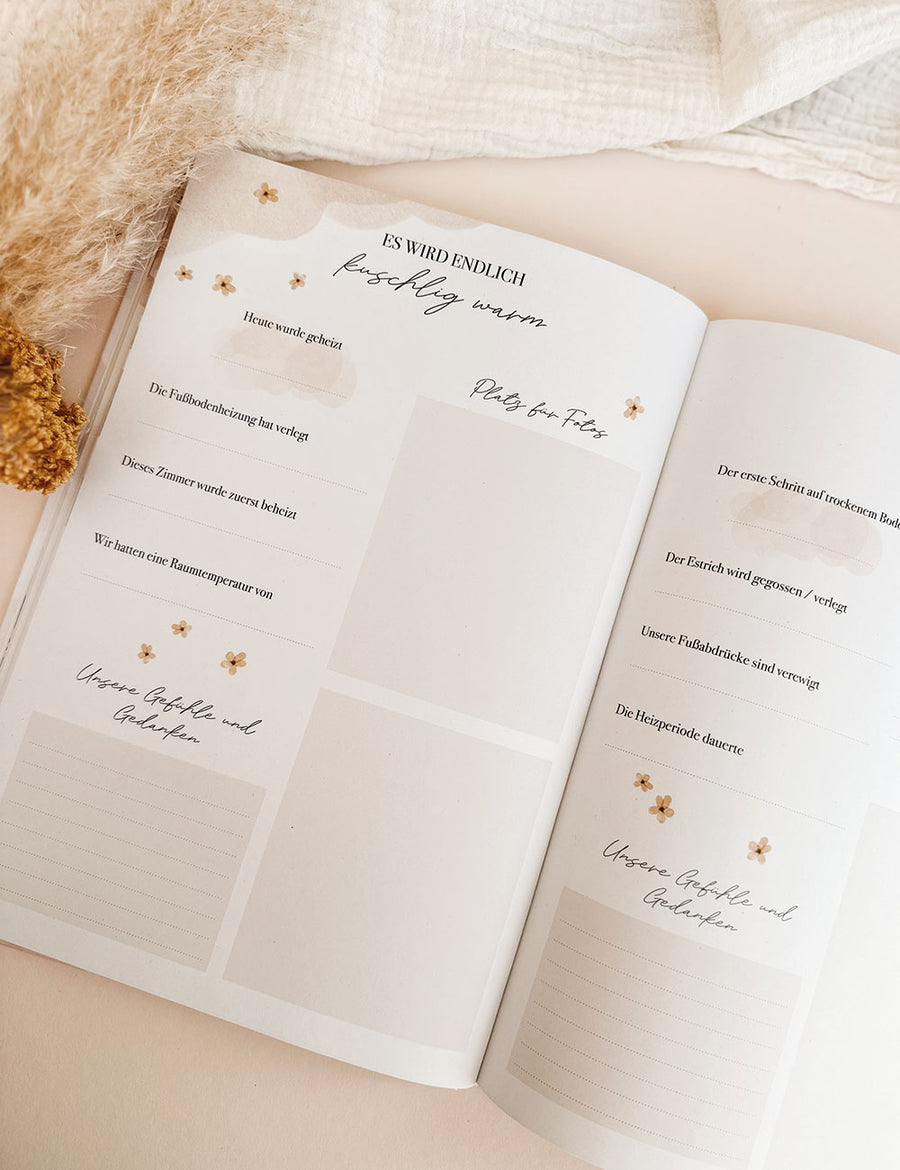 ES WIRD ENDLICH
kuschlig warm
Heute wurde geheizt
Die Fußbodenheizung hat verlegt
Dieses Zimmer wurde zuerst beheizt
Wir hatten eine Raumtemperatur von
Platz für Fotos
Unsere Gefühle und
Gedanken
Der erste Schritt auf trockenem Bode
Der Estrich wird gegossen / verlegt
Unsere Fußabdrücke sind verewigt
Die Heizperiode dauerte
Unsere Gefühle und
Gedanken